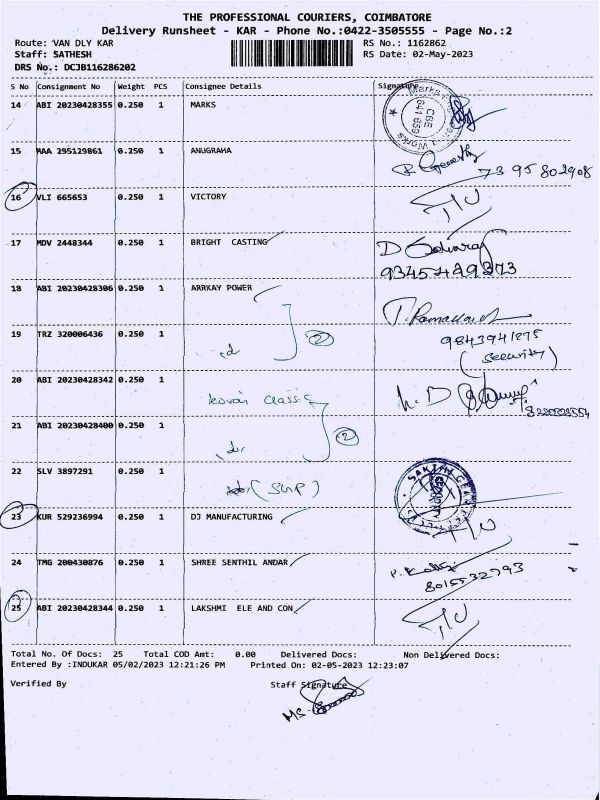 THE PROFESSIONAL COURIERS, COIMBATORE
Delivery Runsheet - KAR - Phone No.:0422-3505555 - Page No.:2
Route: VAN DLY KAR RS No.: 1162862
Staff: SATHESH RS Date: 02-May-2023
DRS No.: DCJB116286202
S No Consignment No Weight PCS Consignee Details Signature
14 ABI 20230428355 0.250 1 MARKS
CBE
641 659
15 MAA 295129861 0.250 1 ANUGRAHA
73 95 802908
16 VLI 665653 0.250 1 VICTORY
17 MDV 2448344 0.250 1 BRIGHT CASTING
18 ABI 20230428306 0.250 1 ARRKAY POWER
19 TRZ 320006436 0.250 1
2
9843941275
(Security)
20 ABI 20230428342 0.250 1
Kovai Classic
21 ABI 20230428400 0.250 1
2
22 SLV 3897291 0.250 1
23 KUR 529236994 0.250 1 DJ MANUFACTURING
24 TMG 200430876 0.250 1 SHREE SENTHIL ANDAR
8015532793
25 ABI 20230428344 0.250 1 LAKSHMI ELE AND CON
Total No. Of Docs: 25 Total COD Amt: 0.00 Delivered Docs: Non Delivered Docs:
Entered By :INDUKAR 05/02/2023 12:21:26 PM Printed On: 02-05-2023 12:23:07
Verified By Staff Signature